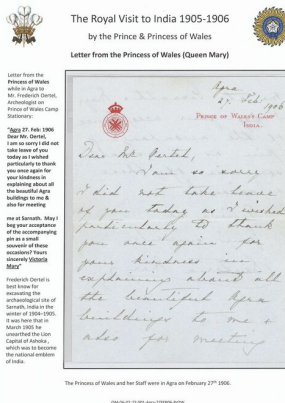 The Royal Visit to India 1905-1906
by the Prince & Princess of Wales
Letter from the Princess of Wales (Queen Mary)
Letter from the
Princess of Wales
while in Agra to
Mr. Frederich Oertel,
Archeologist on
Prince of Wales Camp
Stationary:
"Agra 27. Feb: 1906
Dear Mr. Oertel,
I am so sorry I did not
take leave of you
today as I wished
particularly to thank
you once again for
your kindness in
explaining about all
the beautiful Agra
buildings to me &
also for meeting
me at Sarnath. May I
beg your acceptance
of the accompanying
pin as a small
souvenir of these
occasions? Yours
sincerely Victoria
Mary"
Frederich Oertel is
best know for
excavating the
archaeological site of
Sarnath, India in the
winter of 1904–1905.
It was here that in
March 1905 he
unearthed the Lion
Capital of Ashoka ,
which was to become
the national emblem
of India.
Agra
27. Feb:
1906
PRINCE OF WALES'S CAMP
INDIA.
Dear Mr. Oertel,
I am so sorry
I did not take leave
of you today as I wished
particularly to thank
you once again for
your kindness in
explaining about all
the beautiful Agra
buildings to me &
also for meeting
The Princess of Wales and her Staff were in Agra on February 27th 1906.